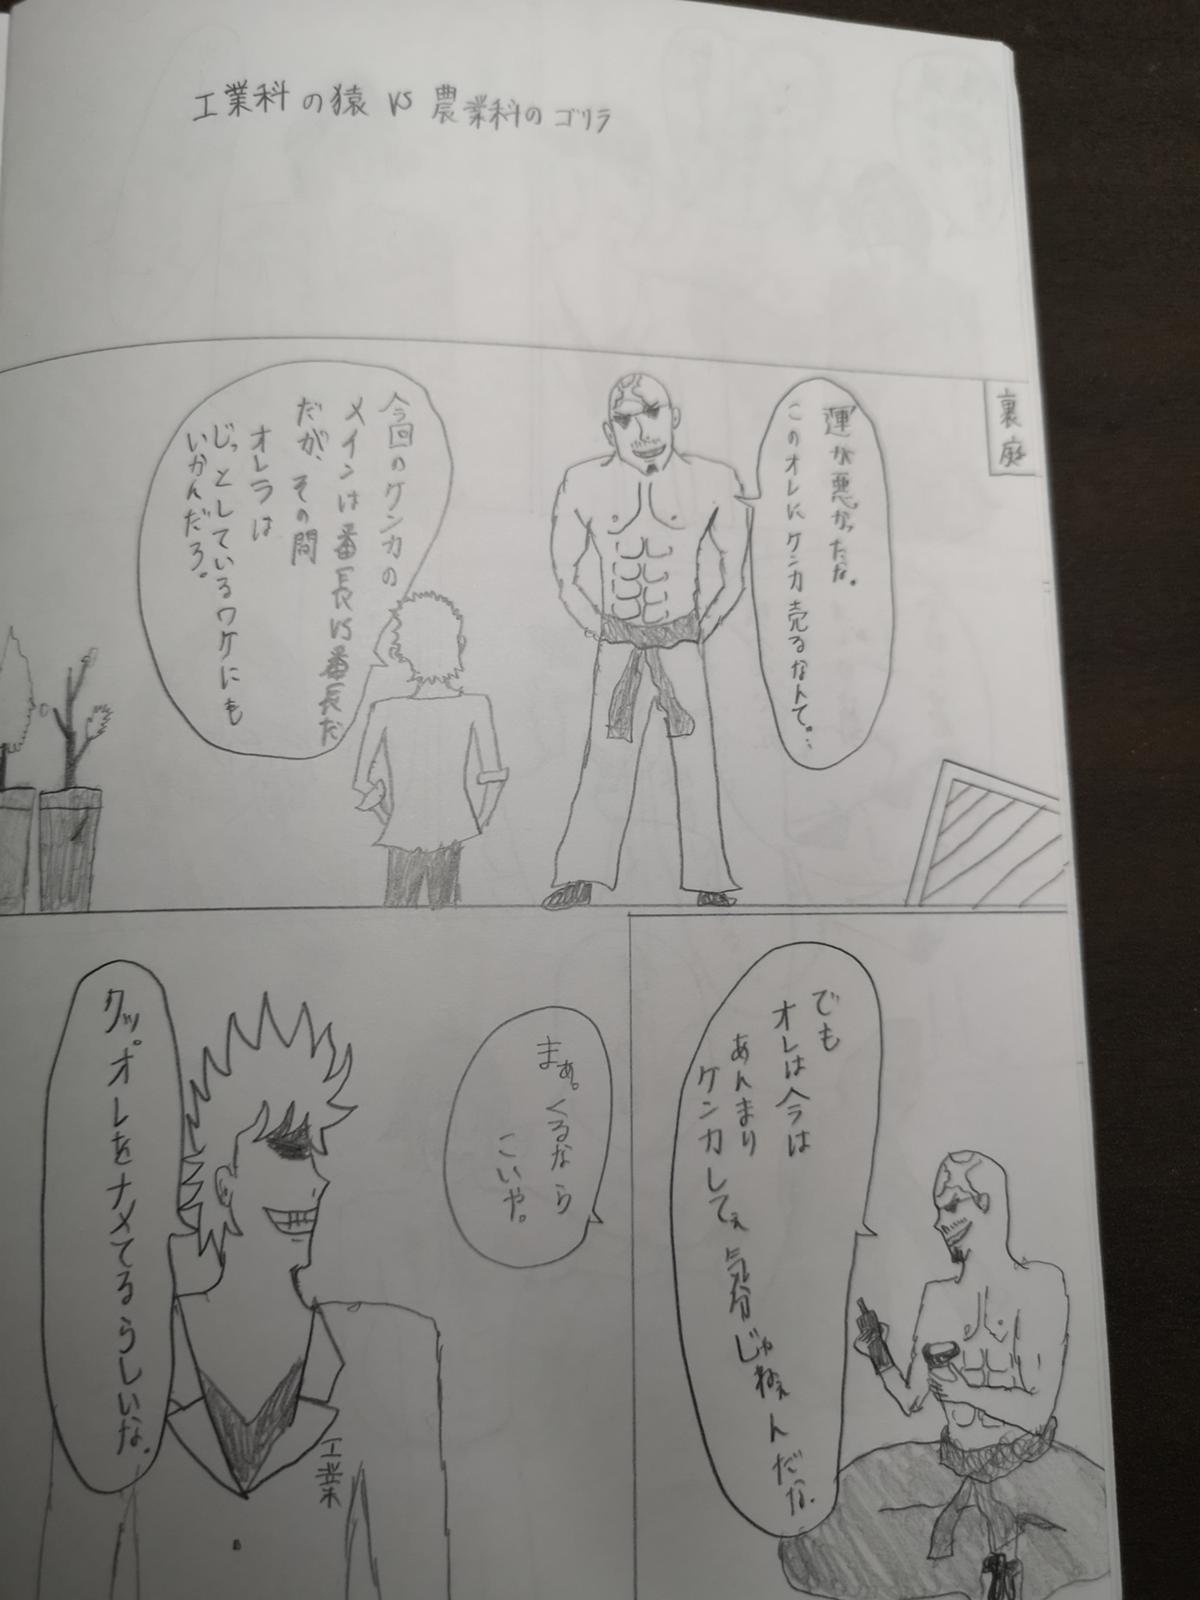 工業科の猿 VS 農業科のゴリラ
裏庭
運が悪かったな。
このオレにケンカ売るなんて…
今回のケンカの
メインは番長VS番長だ
だが、その間
オレラは
じっとしているワケにも
いかんだろ。
でも
オレは今は
あんまり
ケンカしてぇ気分じゃねぇんだな。
まぁ。くるなら
こいや。
クッ。オレをナメてるらしいな。
工業